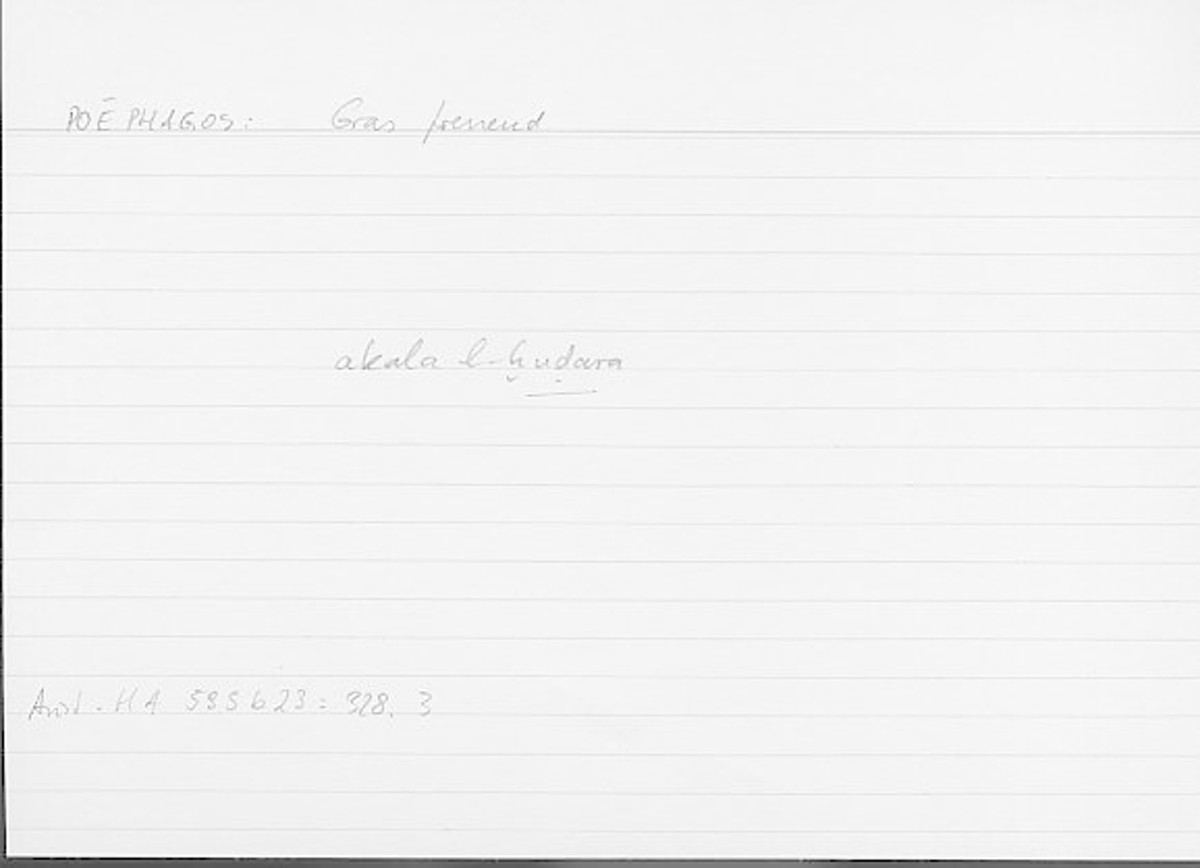 POĒPHAGOS: Gras fressend
akala l-ḫuḍara
Arist. HA 595b23: 328,3